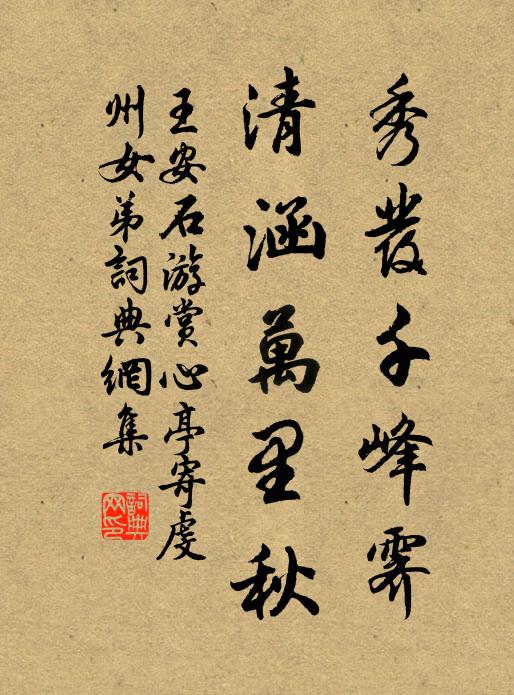 秀發千峰霽
清涵萬里秋
王安石游賞心亭寄虔
州女弟詞典網集
詞典网印